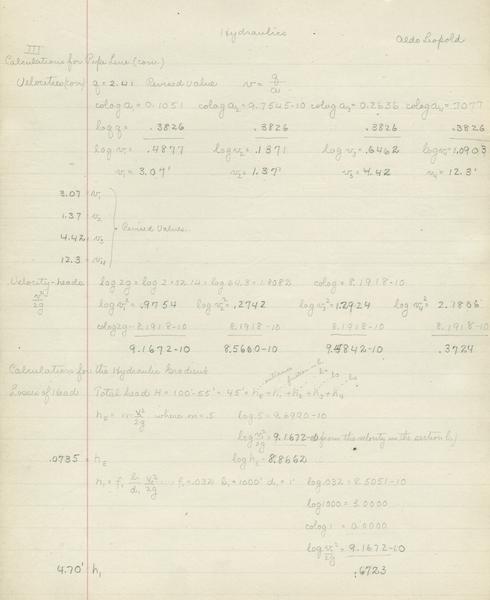 Hydraulics
Aldo Leopold
III
Calculations for Pipe Line (con.)
Velocities (con) q = 2.41 Revised Value v = q/a
colog a₁ = 0.1051 colog a₂ = 9.7545-10 colog a₃ = 0.2636 colog a₄ = .7077
log q = .3826 .3826 .3826 .3826
log v₁ = .4877 log v₂ = .1371 log v₃ = .6462 log v₄ = 1.0903
v₁ = 3.07' v₂ = 1.37' v₃ = 4.42 v₄ = 12.3'
3.07 v₁
1.37 v₂
4.42 v₃ Revised Values.
12.3 v₄
Velocity-heads log 2g = log 2 × 32.14 = log 64.3 = 1.8082 colog = 8.1918-10
v²/2g log v₁² = .9754 log v₂² = .2742 log v₃² = 1.2924 log v₄² = 2.1806
colog 2g = 8.1918-10 8.1918-10 8.1918-10 8.1918-10
9.1672-10 8.5660-10 9.4842-10 .3724
Calculations for the Hydraulic Gradient
entrance friction l₁ l₂ l₃
Losses of Head Total head H = 100'-55' = 45' = hE + h₁ + h₂ + h₃ + h₄
hE = m v₁²/2g where m = .5 log .5 = 9.6990-10
log v₁²/2g = 9.1672-10 (from the velocity in the section l₁)
.0735 = hE log hE = 8.8662
h₁ = f₁ l₁/d₁ v₁²/2g f₁ = .032 l₁ = 1000' d₁ = 1' log .032 = 8.5051-10
log 1000 = 3.0000
colog 1 = 0.0000
log v₁²/2g = 9.1672-10
4.70' h₁ .6723